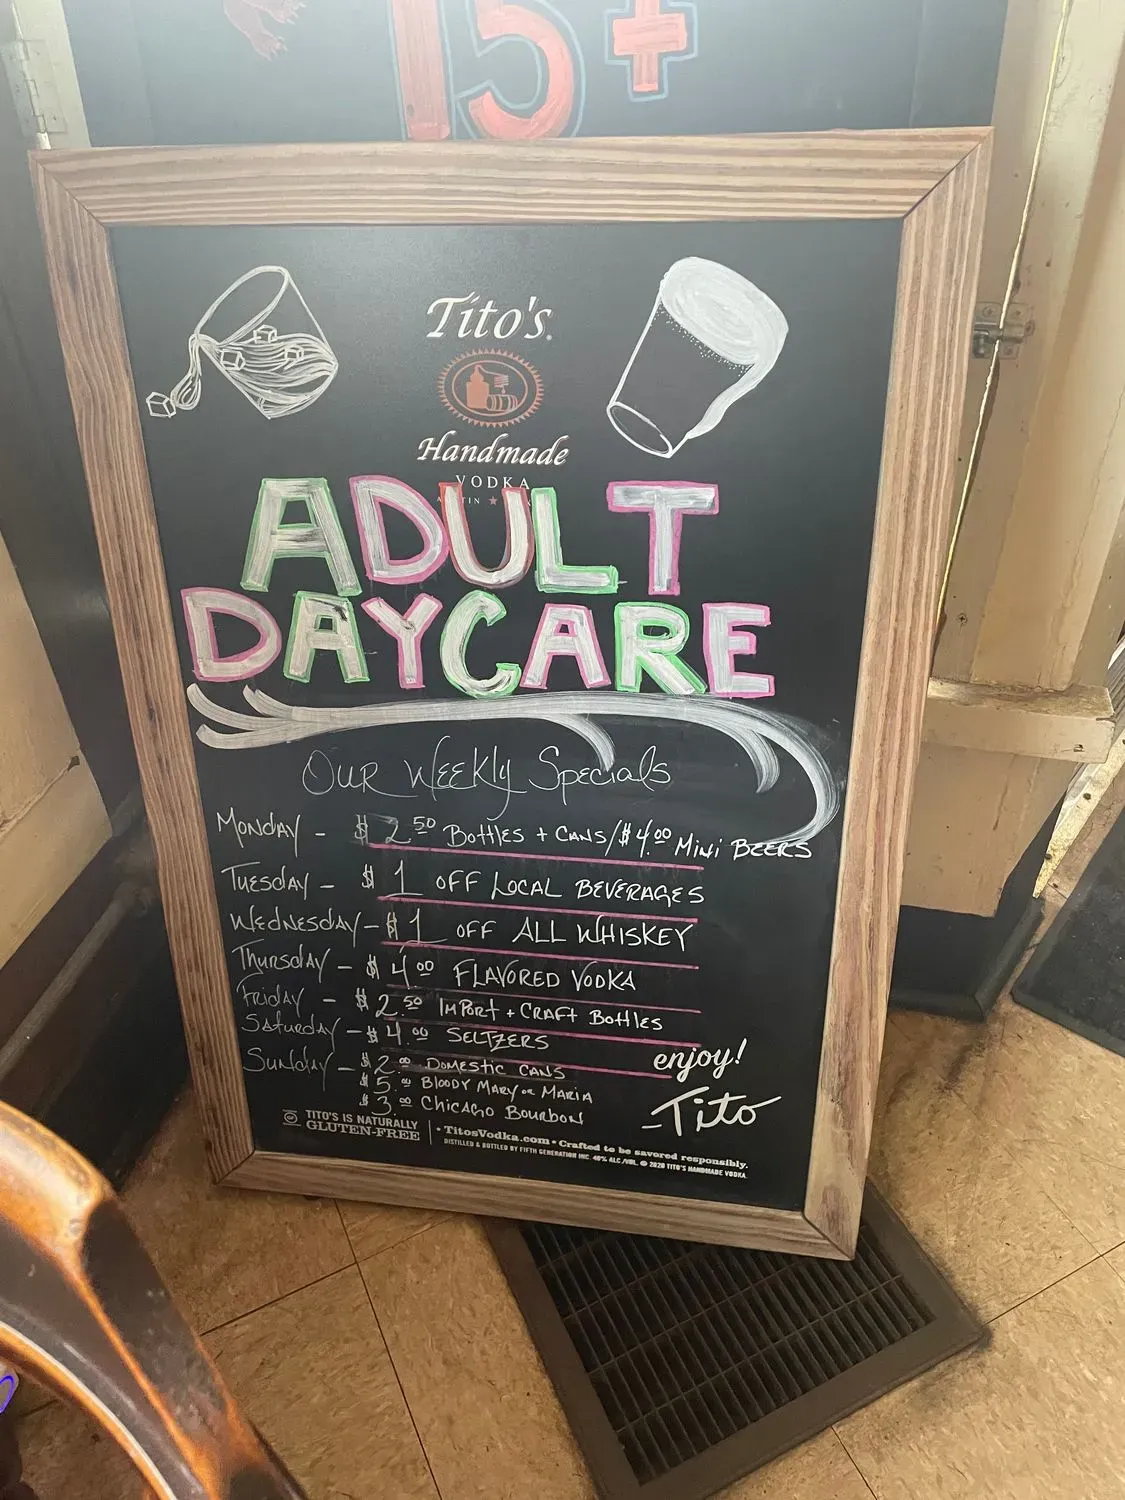 15+
Tito's
Handmade
VODKA
ADULT
DAYCARE
OUR WEEKly Specials
MONDAY - $2.50 BOttlES + CANS/$4.00 MiNi BEERS
TUESDAY - $1 OFF LOCAL BEVERAGES
WEDNESday - $1 OFF ALL WHISKEY
Thursday - $4.00 FLAVORED VODKA
FRiDAY - $2.50 IMPORt + CRAFT BOttlES
SAturday - $4.00 SELTZERS
SuNday - $2.00 DOMEStiC CANS
$5.00 BlOODY MARY OR MARIA
$3.00 CHiCAGO BOURBON
enjoy!
-Tito
TITO'S IS NATURALLY
GLUTEN-FREE
• TitosVodka.com • Crafted to be savored responsibly.
DISTILLED & BOTTLED BY FIFTH GENERATION INC. 40% ALC./VOL. © 2020 TITO'S HANDMADE VODKA.